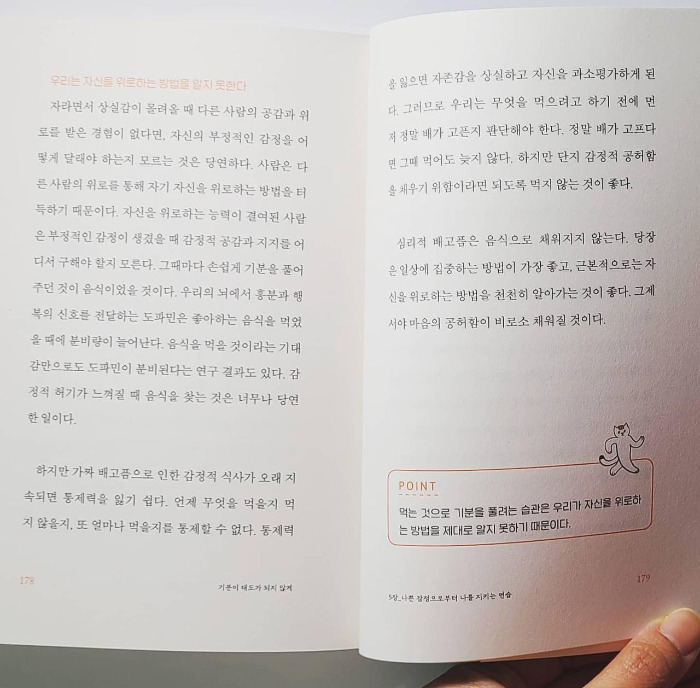 우리는 자신을 위로하는 방법을 알지 못한다
자라면서 상실감이 몰려올 때 다른 사람의 공감과 위
로를 받은 경험이 없다면, 자신의 부정적인 감정을 어
떻게 달래야 하는지 모르는 것은 당연하다. 사람은 다
른 사람의 위로를 통해 자기 자신을 위로하는 방법을 터
득하기 때문이다. 자신을 위로하는 능력이 결여된 사람
은 부정적인 감정이 생겼을 때 감정적 공감과 지지를 어
디서 구해야 할지 모른다. 그때마다 손쉽게 기분을 풀어
주던 것이 음식이었을 것이다. 우리의 뇌에서 흥분과 행
복의 신호를 전달하는 도파민은 좋아하는 음식을 먹었
을 때에 분비량이 늘어난다. 음식을 먹을 것이라는 기대
감만으로도 도파민이 분비된다는 연구 결과도 있다. 감
정적 허기가 느껴질 때 음식을 찾는 것은 너무나 당연
한 일이다.
하지만 가짜 배고픔으로 인한 감정적 식사가 오래 지
속되면 통제력을 잃기 쉽다. 언제 무엇을 먹을지 먹
지 않을지, 또 얼마나 먹을지를 통제할 수 없다. 통제력
178
기분이 태도가 되지 않게
을 잃으면 자존감을 상실하고 자신을 과소평가하게 된
다. 그러므로 우리는 무엇을 먹으려고 하기 전에 먼
저 정말 배가 고픈지 판단해야 한다. 정말 배가 고프다
면 그때 먹어도 늦지 않다. 하지만 단지 감정적 공허함
을 채우기 위함이라면 되도록 먹지 않는 것이 좋다.
심리적 배고픔은 음식으로 채워지지 않는다. 당장
은 일상에 집중하는 방법이 가장 좋고, 근본적으로는 자
신을 위로하는 방법을 천천히 알아가는 것이 좋다. 그제
서야 마음의 공허함이 비로소 채워질 것이다.
POINT
먹는 것으로 기분을 풀려는 습관은 우리가 자신을 위로하
는 방법을 제대로 알지 못하기 때문이다.
179
5장_나쁜 감정으로부터 나를 지키는 연습